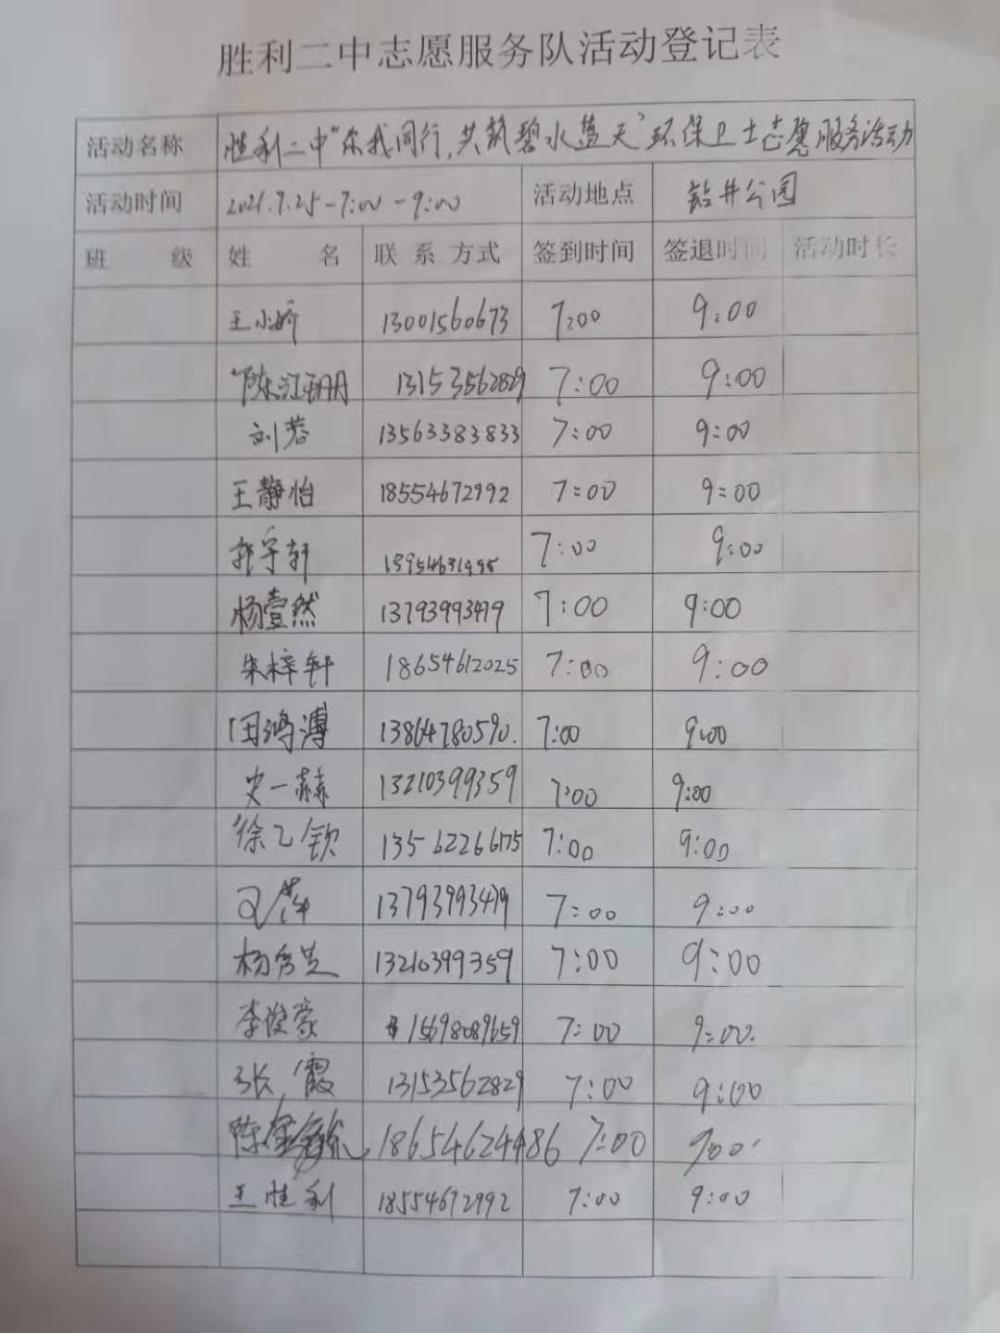 胜利二中志愿服务队活动登记表
活动名称 胜利二中"你我同行,共筑碧水蓝天"环保卫士志愿服务活动
活动时间 2021.7.25-7:00-9:00 活动地点 钻井公园
班 级 姓 名 联系方式 签到时间 签退时间 活动时长
王小娇 13001560673 7:00 9:00
陈江玥 13153562829 7:00 9:00
刘蓉 13563383833 7:00 9:00
王静怡 18554672992 7:00 9:00
郭宇轩 7:00 9:00
杨壹然 13793993479 7:00 9:00
朱梓轩 18654612025 7:00 9:00
田鸿溥 13864780590. 7:00 9:00
史一赫 13210399359 7:00 9:00
徐乙钦 13562266175 7:00 9:00
萍 13793993479 7:00 9:00
杨 13210399359 7:00 9:00
李俊豪 15698089659 7:00 9:00.
张霞 13153562829 7:00 9:00
陈 18654624486 7:00 9:00
王胜利 18554672992 7:00 9:00